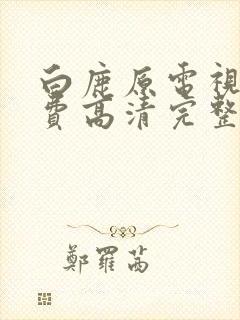 白鹿原電視
費高清完整
鄭羅茜